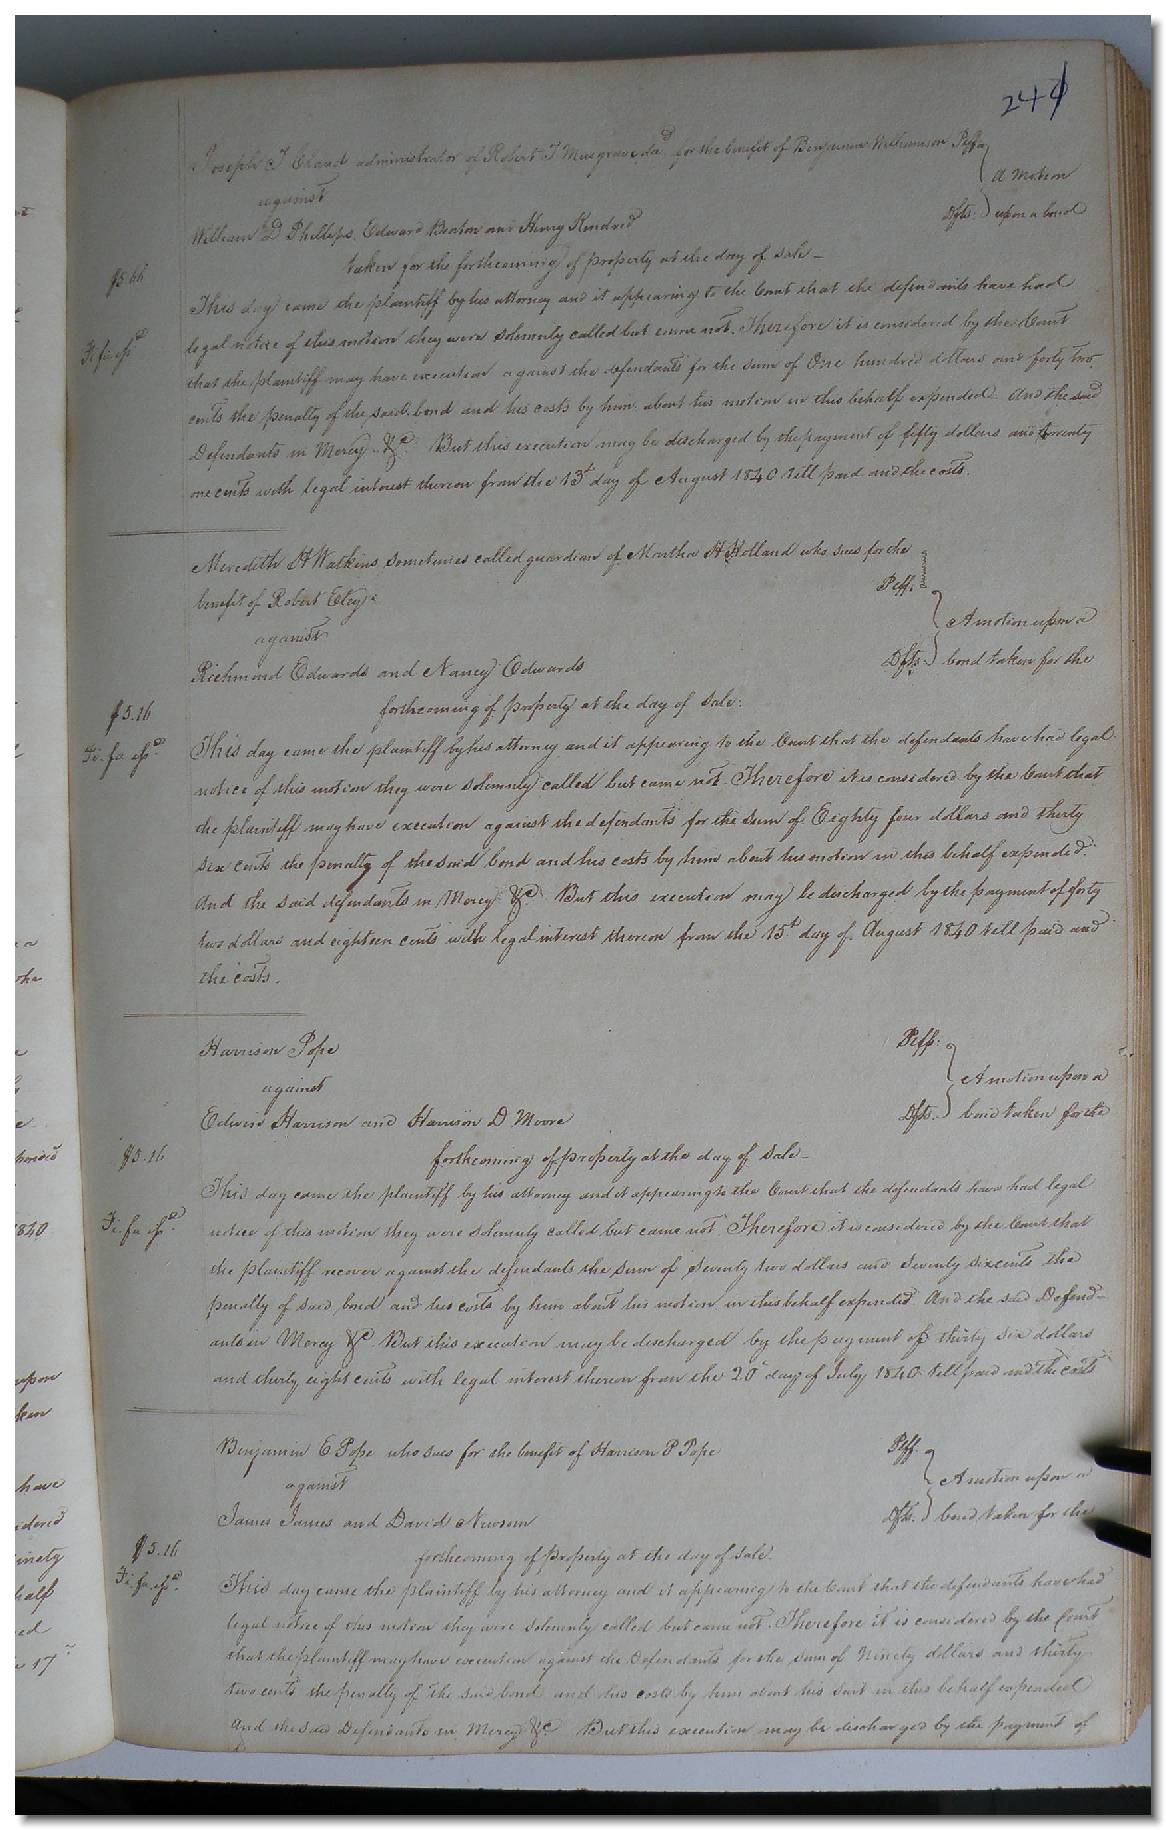 24
Joseph T Claud administrator of Robert T Musgrave decd. for the benefit of Benjamin Williamson Plff
A Motion
against
Dfts. upon a bond
William D Phillips, Edward Beaton and Henry Kindred
taken for the forthcoming of property at the day of sale -
$5.66
This day came the plaintiff by his attorney and it appearing to the Court that the defendants have had
legal notice of this motion they were solemnly called but came not. Therefore it is considered by the Court
Fi. fa. isd
that the plaintiff may have execution against the defendants for the sum of One hundred dollars and forty two
cents the penalty of the said bond and his costs by him about his motion in this behalf expended. And the said
Defendants in Mercy &c. But this execution may be discharged by the payment of fifty dollars and twenty
one cents with legal interest thereon from the 13t day of August 1840 till paid and the costs.
Meredith H Watkins, sometimes called guardian of Martha H Holland who sues for the
Plff.
benefit of Robert Eley
A motion upon a
against
Dfts. bond taken for the
Richmond Edwards and Nancy Edwards
$5.16
forthcoming of property at the day of sale.
Fi. fa. isd.
This day came the plaintiff by his attorney and it appearing to the Court that the defendants have had legal
notice of this motion they were solemnly called but came not. Therefore it is considered by the Court that
the plaintiff may have execution against the defendants for the sum of Eighty four dollars and thirty
six cents the penalty of the said bond and his costs by him about his motion in this behalf expended.
And the said defendants in Mercy &c. But this execution may be discharged by the payment of forty
two dollars and eighteen cents with legal interest thereon from the 15t day of August 1840 till paid and
the costs.
Harrison Pope
Plff.
A motion upon a
against
Dfts. bond taken for the
Edwin Harrison and Harrison D Moore
$5.16
forthcoming of property at the day of sale -
This day came the plaintiff by his attorney and it appearing to the Court that the defendants have had legal
Fi. fa. isd.
notice of this motion they were solemnly called but came not. Therefore it is considered by the Court that
the plaintiff recover against the defendants the sum of Seventy two dollars and Seventy six cents the
penalty of said bond and his costs by him about his motion in this behalf expended. And the said Defend-
ants in Mercy &c. But this execution may be discharged by the payment of thirty six dollars
and thirty eight cents with legal interest thereon from the 20 day of July 1840 till paid and the costs
Benjamin E Pope who sues for the benefit of Harrison P Pope
Plff.
A motion upon a
against
Dfts. bond taken for the
James James and David Newsom
$5.16
forthcoming of property at the day of sale.
Fi. fa. isd.
This day came the plaintiff by his attorney and it appearing to the Court that the defendants have had
legal notice of this motion they were solemnly called but came not. Therefore it is considered by the Court
that the plaintiff may have execution against the Defendants for the sum of Ninety dollars and thirty
two cents the penalty of the said bond and his costs by him about his suit in this behalf expended
And the said Defendants in Mercy &c. But this execution may be discharged by the payment of
1840
upon
have
idered
inety
half
ed
17